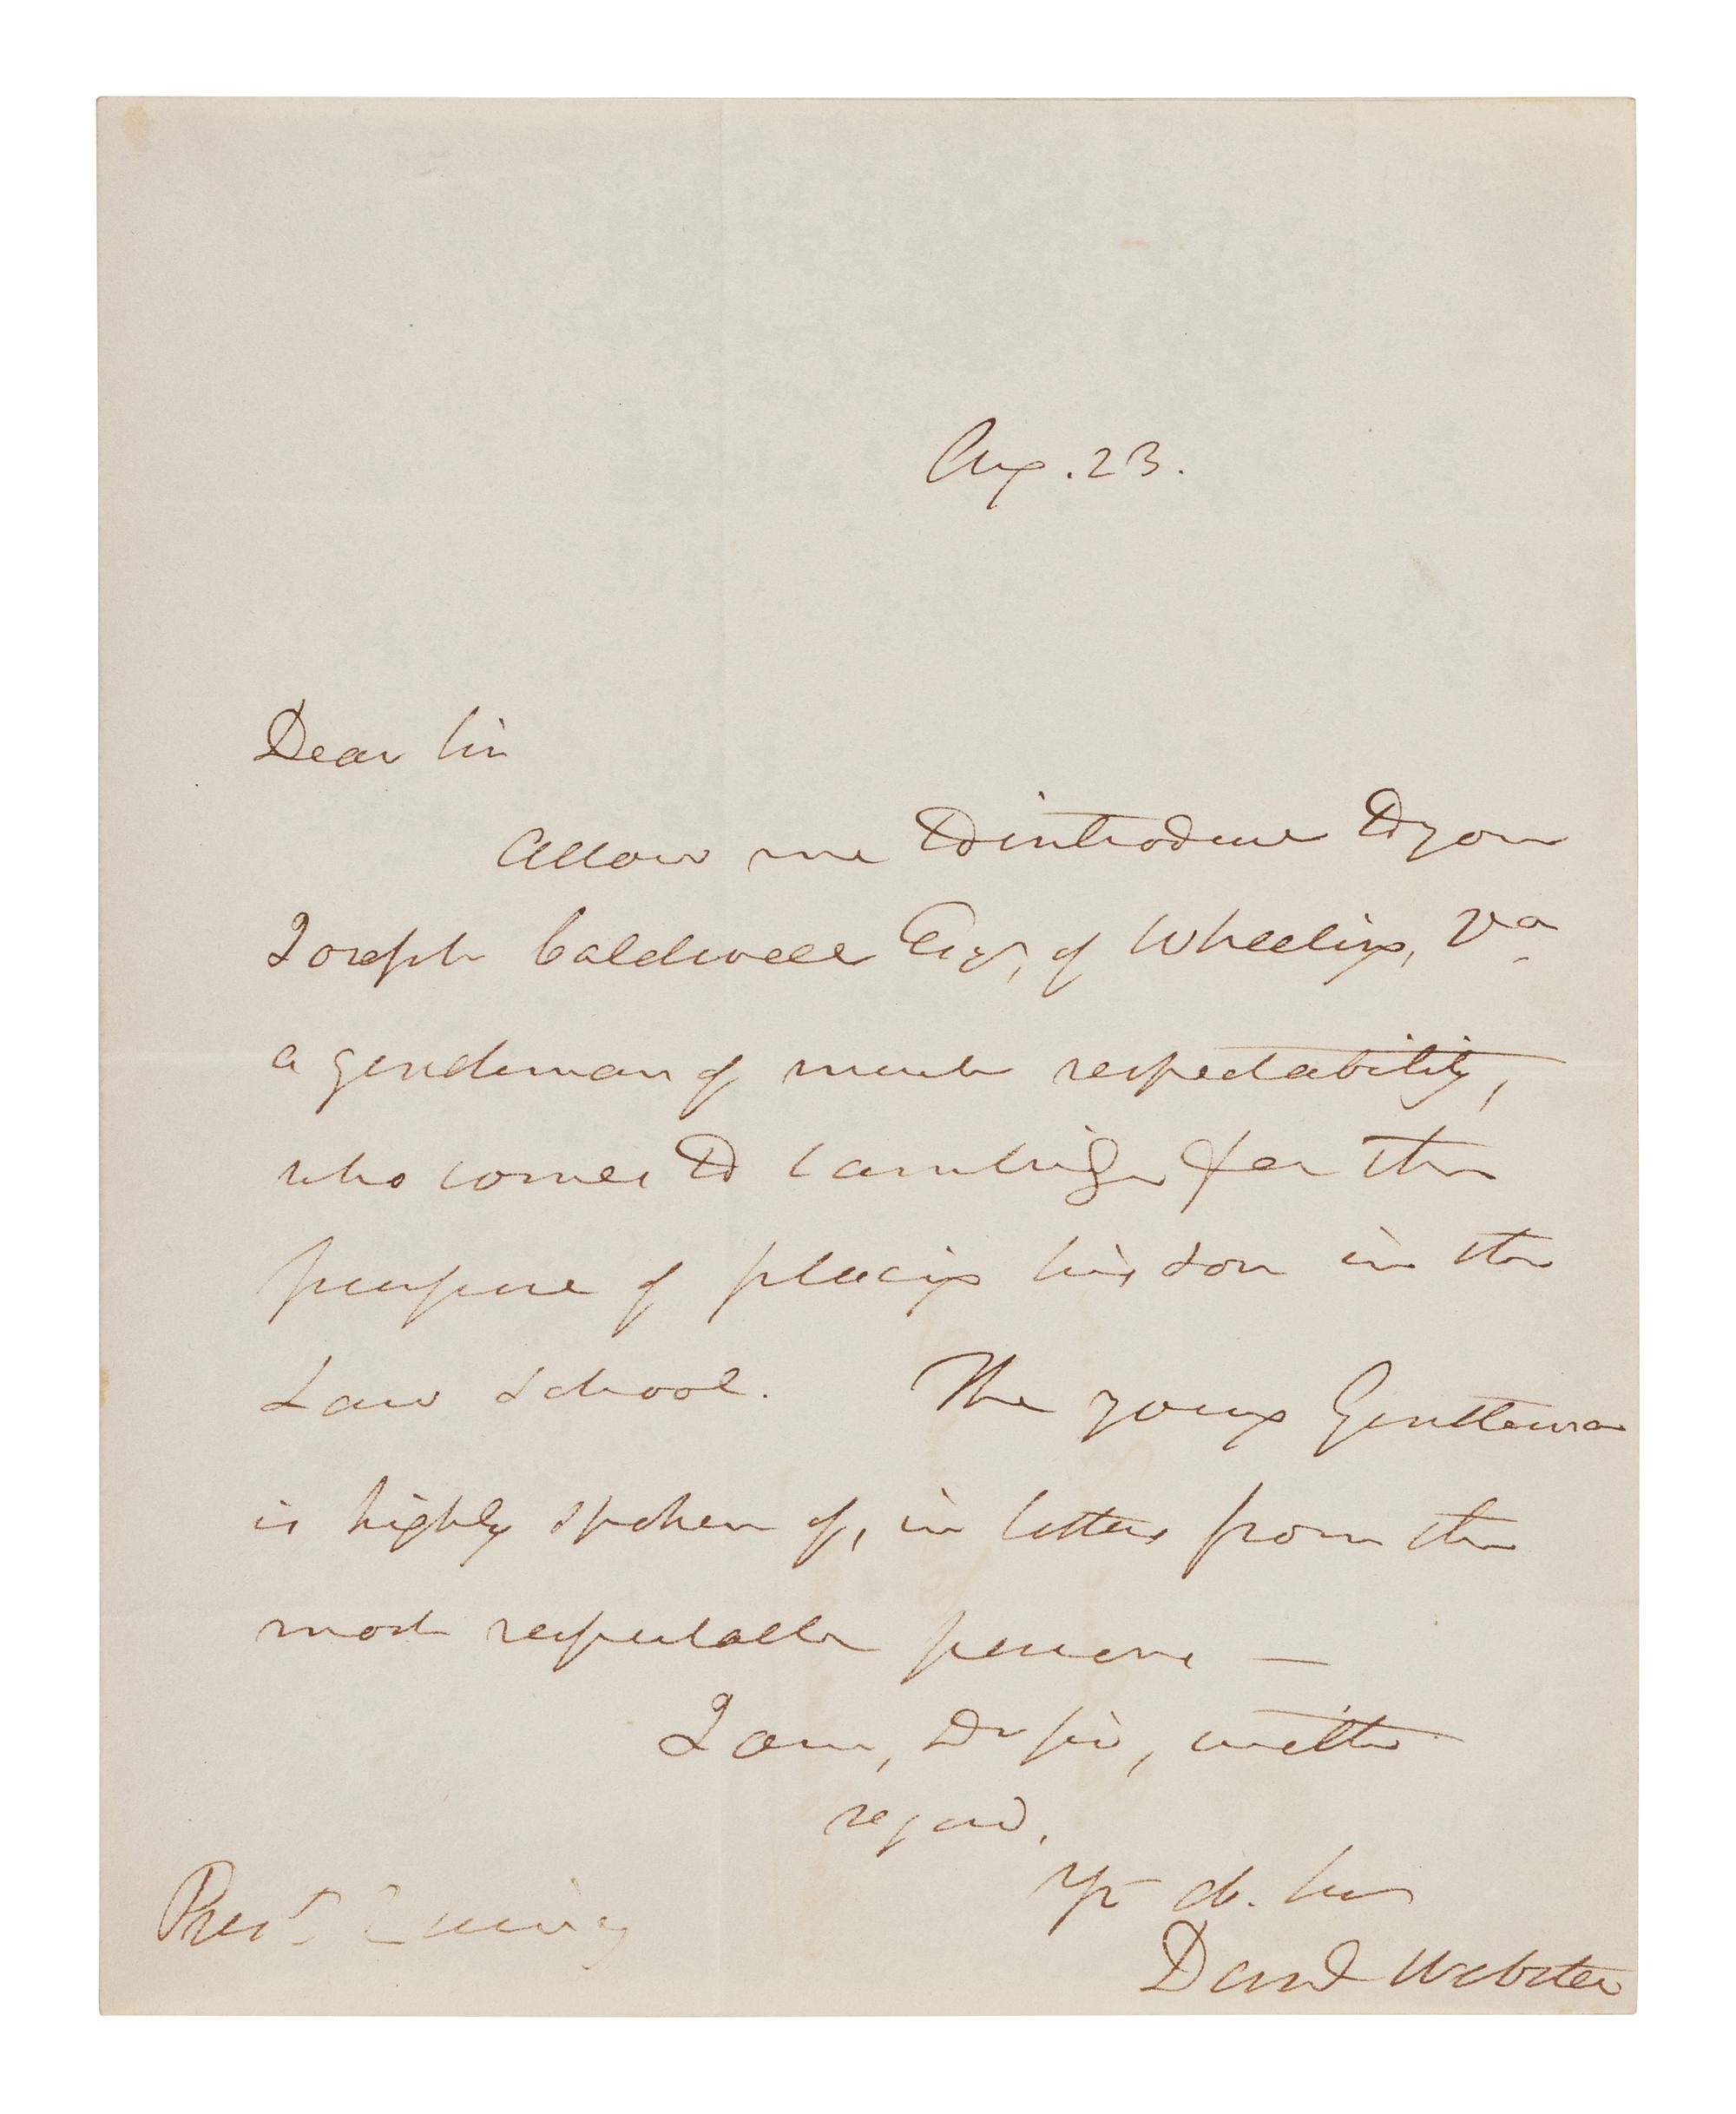 Aug. 23.
Dear Sir
Allow me to introduce to you
Joseph Caldwell Esqr, of Wheeling, Va.
a gentleman of much respectability,
who comes to Cambridge for the
purpose of placing his son in the
Law School. The young Gentleman
is highly spoken of, in letters from the
most respectable persons —
I am, Dr Sir, with
regard,
Yr ob. ser
Danl Webster
Prest. Quincy